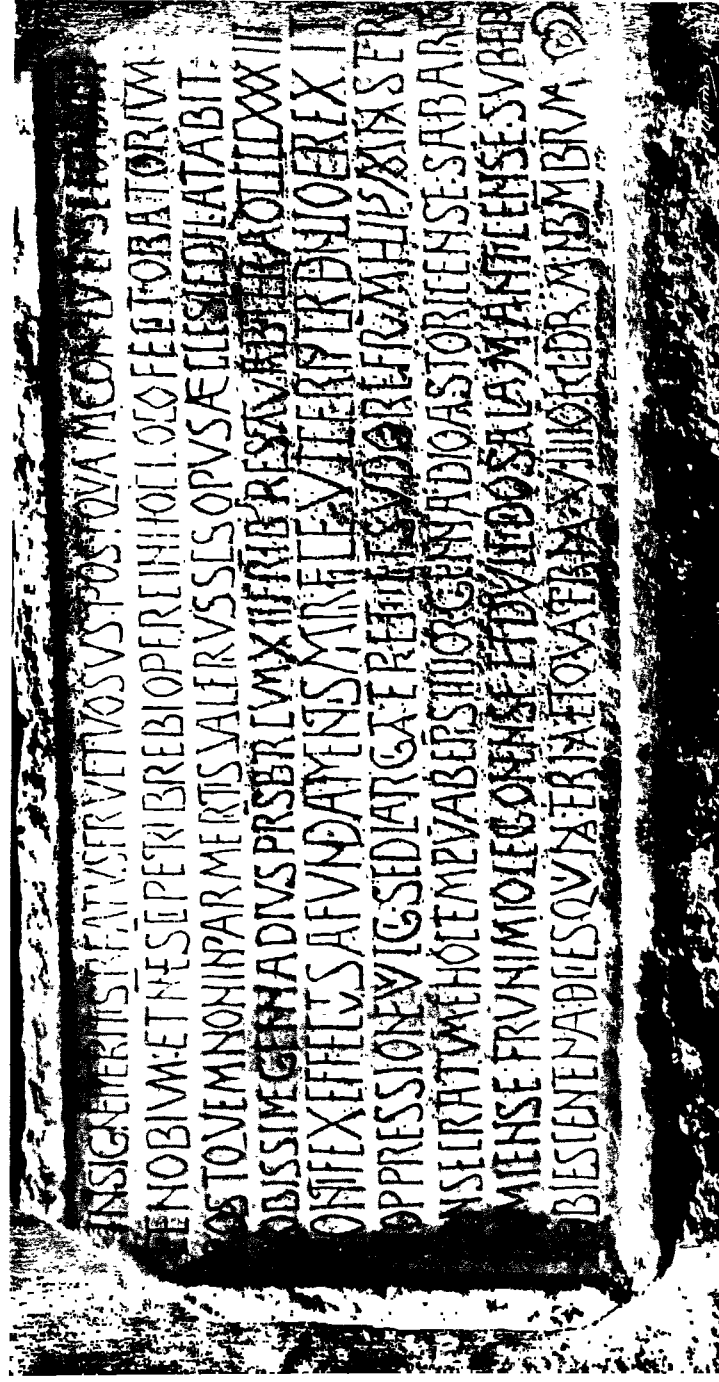 INSIGNE MERITIS BEATVS FRVCTVOSVS POSTQVAM CONPLVTENSE CONDIDIT
CENOBIVM ET NME SCI PETRI BREBI OPERE IN HOC LOCO FECIT ORATORIVM
POST QVEM NON INPAR MERITIS VALERIVS SCS OPVS AECLESIE DILATABIT
NOBISSIME GENNADIVS PRSBTR CVM XII FRIBS RESTAVRABIT ERA DCCCCXXXIII
PONTIFEX EFFECTVS A FVNDAMENTIS MIRIFICE VT CERNITVR DENVO EREXIT
OPPRESSIONE VVLGI SED LARGO PRETIO ET SVDORE FRM HVIVS MNSTER
CONSECRATVM E HOC TEMPLVM AB EPS IIII OR GENNADIO ASTORICENSE SABARICO
DVMIENSE FRVNIMIO LEGIONENSE ET DVLCIDIO SALAMANTICENSE SVB ERA
NOBIES CENTENA DECIES QVINA TERNA ET QVATERNA VIIII O KLDRM NBMBRM